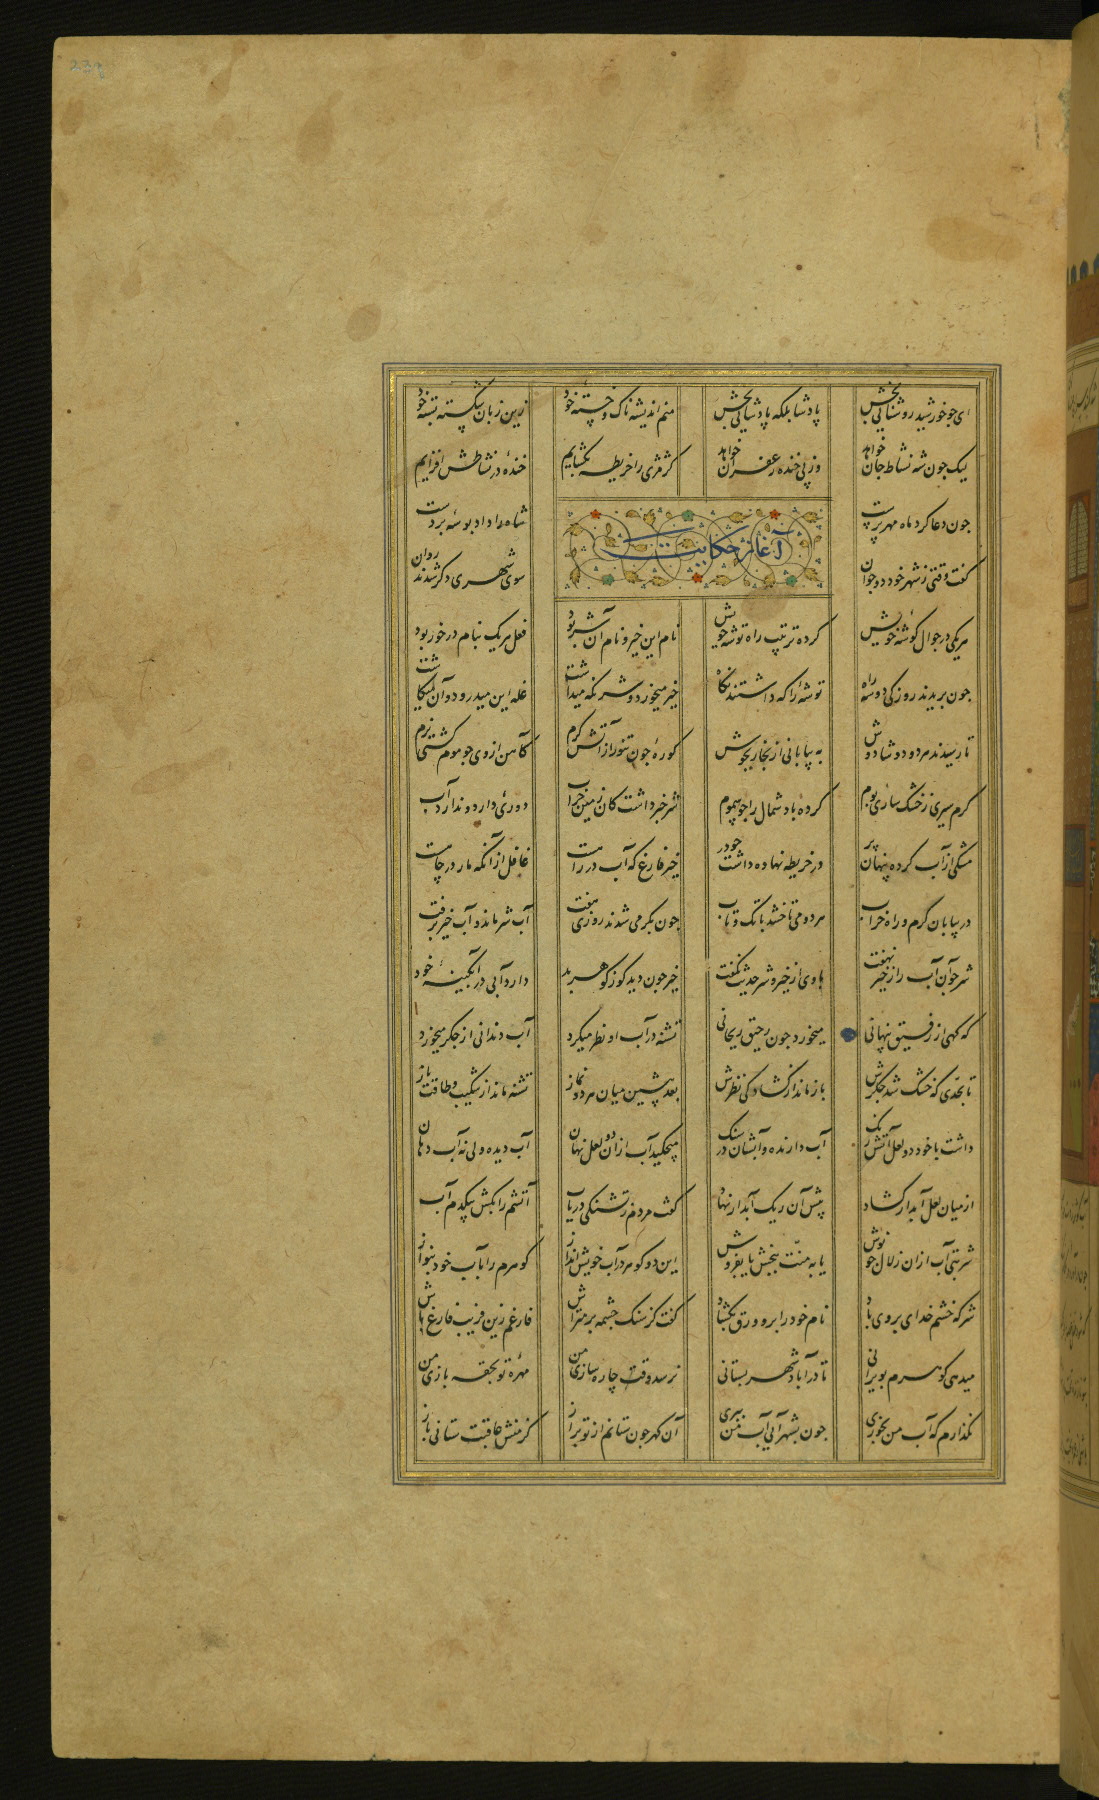 ای جو خورشید روشنایی بخش پادشا بلکه پادشایی بخش منم اندیشه ناک و خسته خود زین زبان شکسته بسته خود
لیک جون شه نشاط جان خواهد وز پی خنده زعفران خواهد کژمژی را خریطه بگشایم خنده در نشاطش افزایم
جون دعا کرد ماه مهر پرست شاه را داد بوسه بر دست
آغاز حکایت
گفت وقتی ز شهر خود دو جوان سوی شهری دگر شدند روان
هر یکی در جوال گوشه خویش کرده ترتیب راه توشه خویش نام این خیر و نام آن شر بود فعل هر یک بنام در خور بود
جون بریدند روزکی دو سه راه توشه را که داشتند نگاه خیر میخورد و شر نگه میداشت غله این میدرود و آن میکاشت
تا رسیدند هر دو دوشادوش به بیابانی از بخار بجوش کوره جون تنور از آتش گرم کآهن از وی جو موم گشتی نرم
گرم سیری ز خشک ساری بوم کرده باد شمال را جو سموم شر خبر داشت کان زمین خراب دوری دارد و ندارد آب
مشکی از آب کرده پنهان پر در خریطه نهاده داشت جو در خیر فارغ که آب در راهست غافل از آنکه مار در جاهست
در بیابان گرم و راه خراب هر دو می تاختند با تک و تاب جون بگرمی شدند روزی هفت آب شر ماند و آب خیر برفت
شر جو آن آب را ز خیر نهفت با وی از خیر و شر حدیث نگفت خیر جون دید کو ز گوهر بد دارد آبی در آبگینه خود
که گهی از رفیق پنهانی میخورد جون رحیق ریحانی تشنه در آب او نظر میکرد آب دندانی از جگر میخورد
تا بحدی که خشک شد جگرش باز ماند از گشادگی نظرش تشنه ماند از شکیب و طاقت باز
داشت با خود دو لعل آتش رنگ آب دارنده و آبشان در سنگ میچکید آب از آن دو لعل نهان آب دیده ولی نه آب دهان
از میان لعل آبدار گشاد پیش آن ریگ آبدار نهاد گفت مردم ز تشنگی دریاب آتشم را بکش بیکدم آب
شربتی آب از آن زلال جو نوش یا به منت ببخش یا بفروش این دو گوهر در آب خویش انداز گوهرم را بآب خود بنواز
شر که خشم خدای بر وی باد نام خود را برو ورق بگشاد گفت کز سنگ جشمه بر متراش فارغم زین فریب فارغ باش
میدهی گوهرم بویرانی تا در آباد شهر بستانی نرسد وقت چاره سازی من مهره تو بحقه بازی من
نگذارم که آب من بخوری جون بشهر آیی آب من ببری آن گهر جون ستانم از تو براز کز منش عاقبت ستانی باز